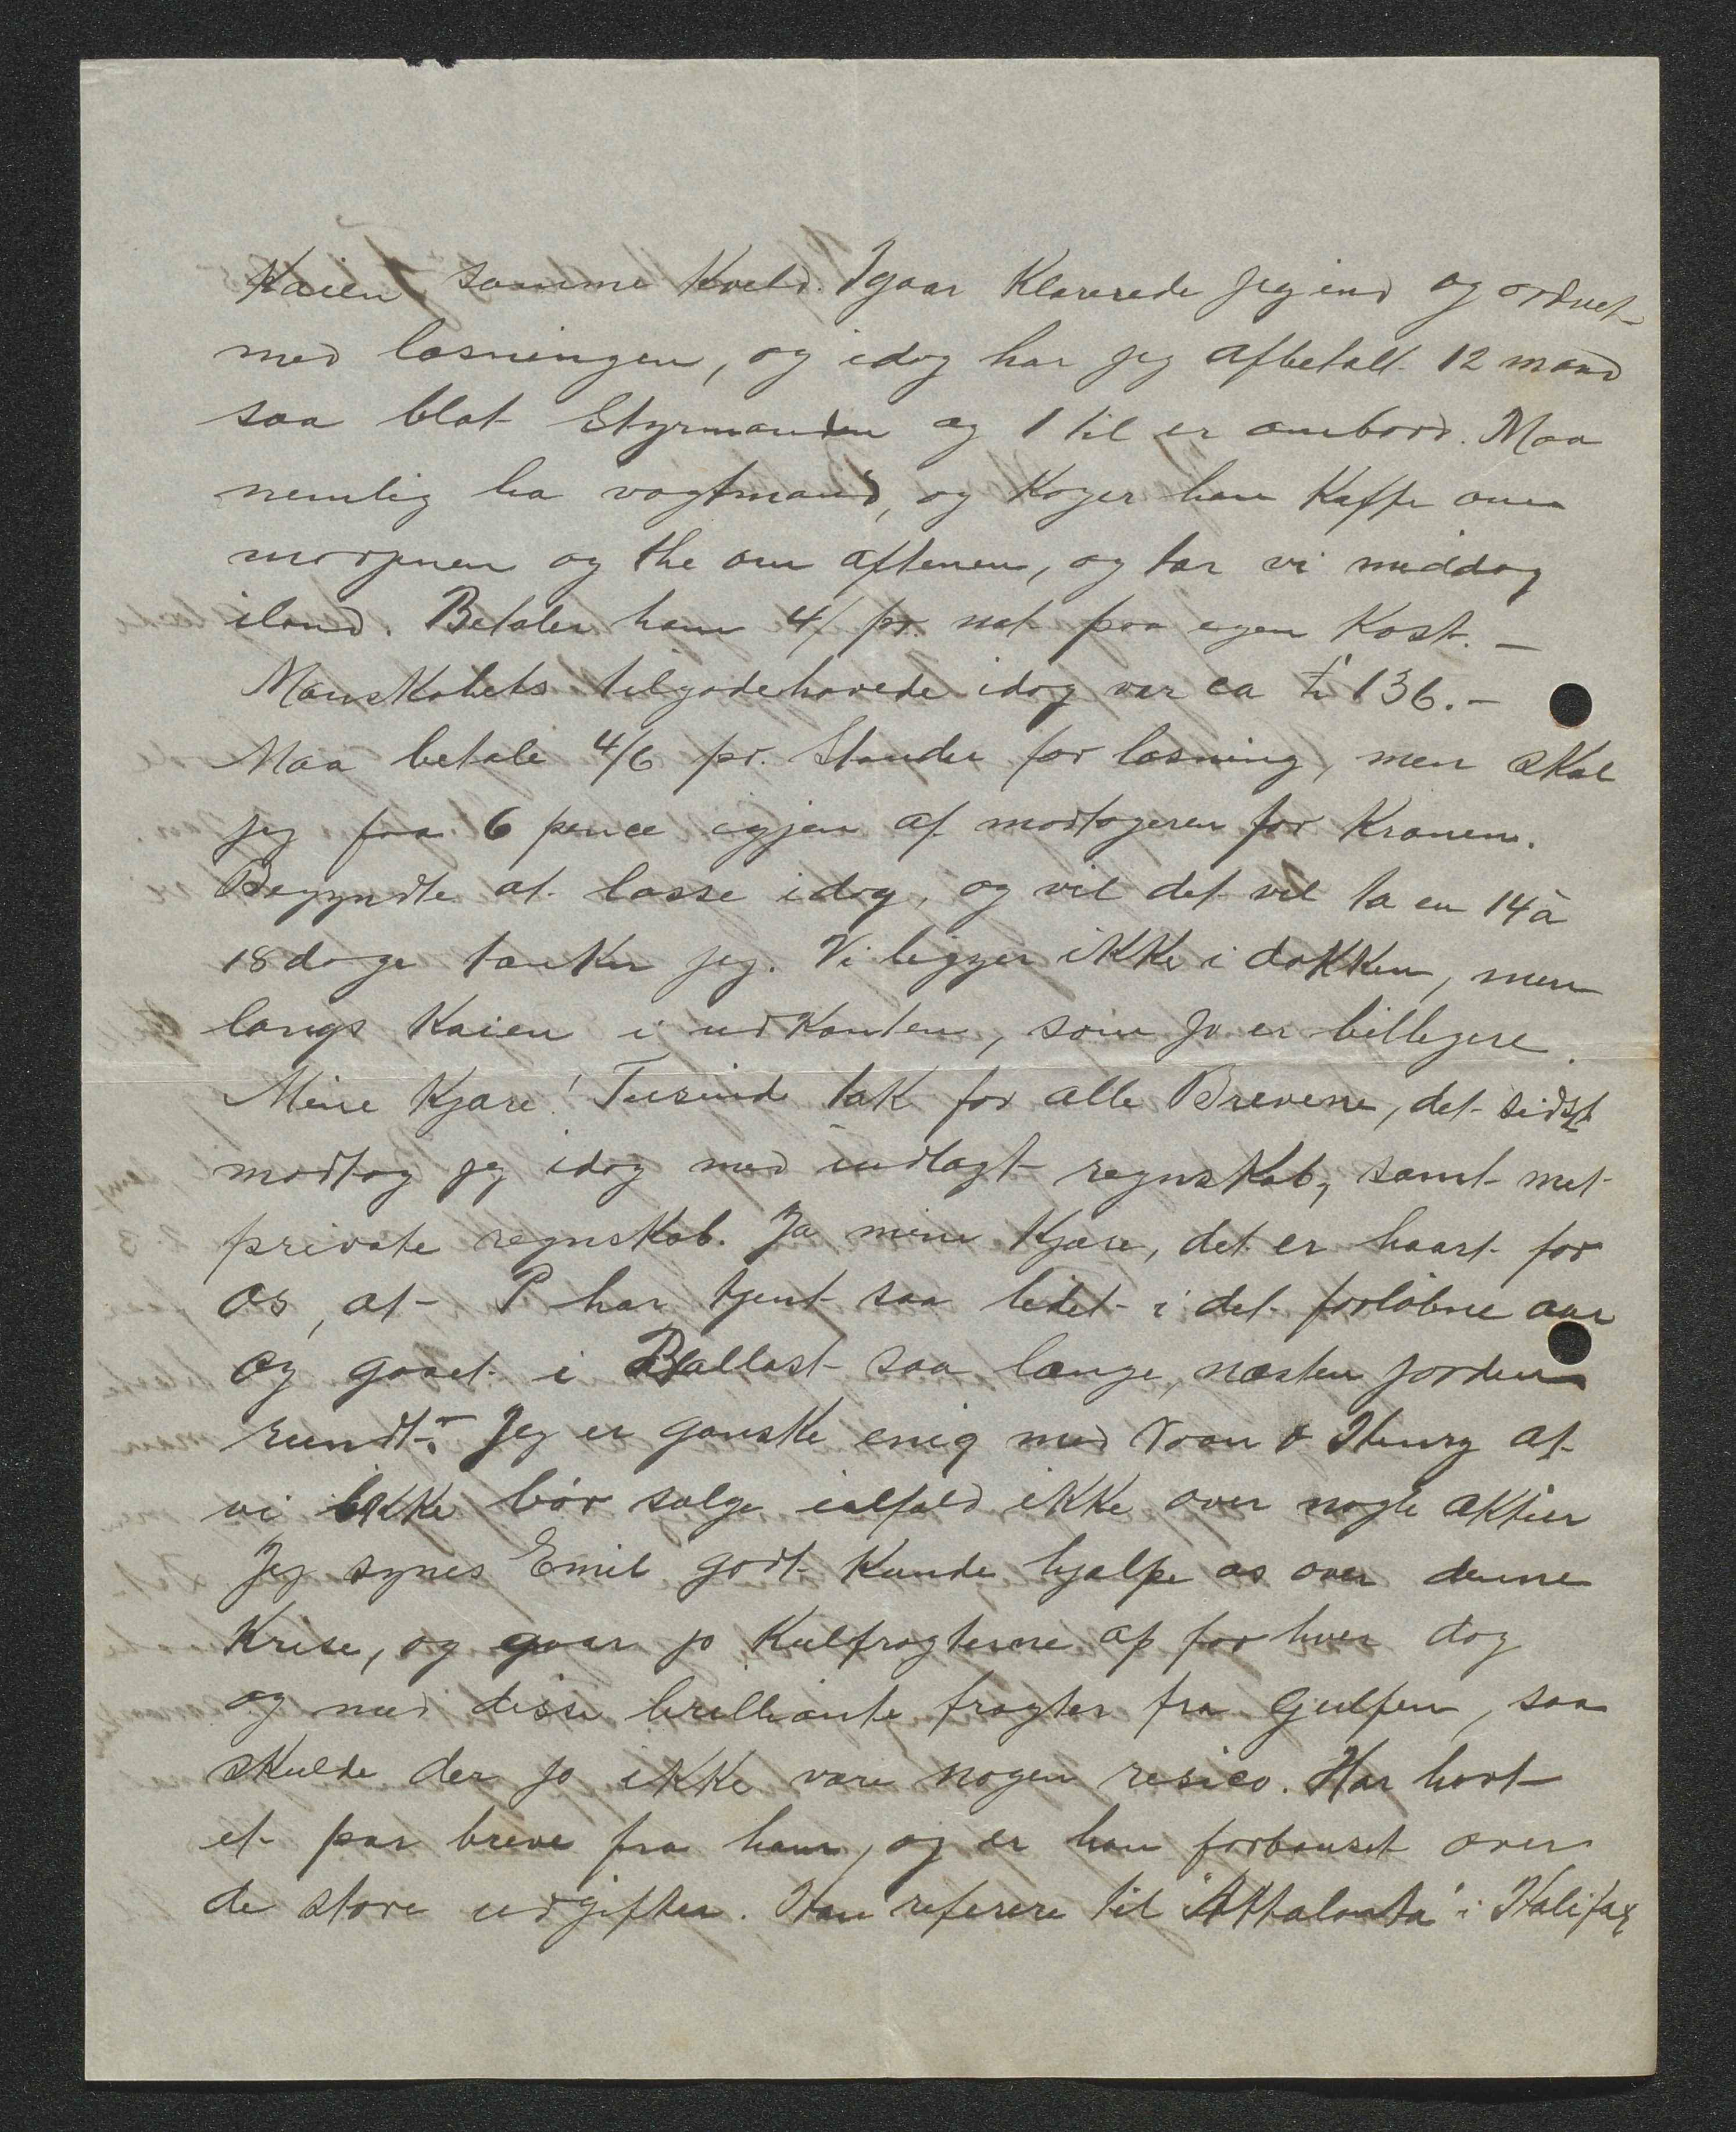 Kaien samme Kveld. Igaar Klarerede jeg ind og ordnet
med losningen, og idag har jeg afbetalt 12 mand
saa blot Styrmanden og 1 til er ombord. Maa
nemlig ha vagtmand, og Koger han Kaffe om
morgnen og the om aftenen, og tar vi middag
iland. Betaler ham 4/ pr. nat paa egen Kost. —
Manskabets tilgodehavede idag var ca £ 136.-
Maa betale 4/6 pr. Stander for losning, men skal
jeg faa 6 pence igjen af modtageren for Kranen.
Begyndte at losse idag, og vil det vel ta en 14 à
18 dage tænker jeg. Vi ligger ikke i dokken, men
langs Kaien i udkanten, som jo er billigere.
Mine Kjære! Tusind tak for alle Brevene, det sidste
modtog jeg idag med indlagt regnskab, samt mit
private regnskab. Ja mine Kjære, det er haart for
os, at P har tjent saa lidet i det forløbne aar
og gaaet i Ballast saa længe, næsten jorden
rundt. Jeg er ganske enig med & Henry at
vi ikke bør sælge ialfald ikke over nogle aktier
Jeg synes Emil godt Kunde hjælpe os over denne
Krise, og gaar jo Kulfragterne op for hver dag
og med disse brilliante fragter fra Gulfen, saa
skulde der jo ikke være nogen resico. Har havt
et par breve fra ham, og er han forbauset over
de store udgifter. Han referere til "Attalanta" i Halifax